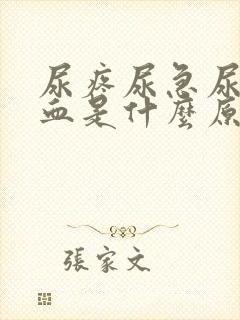 尿疼尿急尿
血是什麼原
張家文